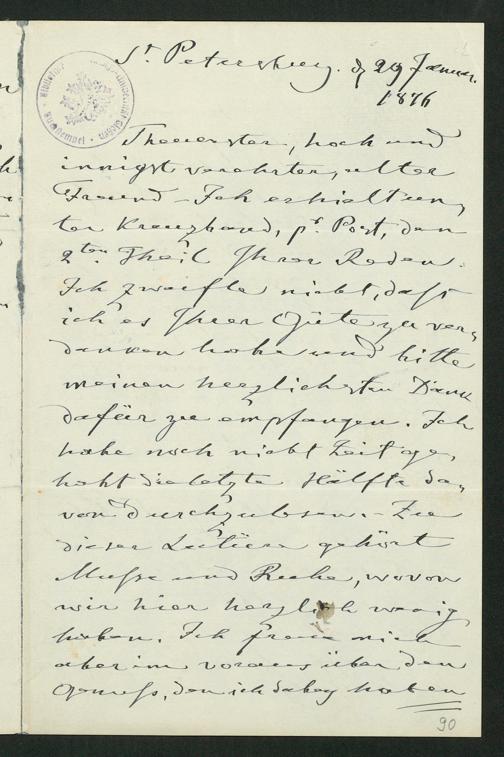 St. Petersburg. d 29 Januar.
1876
Theuerster, hoch und
innigst verehrter, alter
Freund – Ich erhielt un,
ter Kreuzband, pr Post, den
2ten Theil Ihrer Reden.
Ich zweifle nicht, daß
ich es Ihrer Güte zu ver,
danken habe und bitte
meinen herzlichsten Dank
dafür zu empfangen. Ich
habe noch nicht Zeit ge,
habt die letzte Hälfte da,
von durchzulesen. – Zu
dieser Lectüre gehört
Muße und Ruhe, wovon
wir hier herzlich wenig
haben. Ich freue mich
aber im voraus über den
Genuß, den ich dabey haben
90